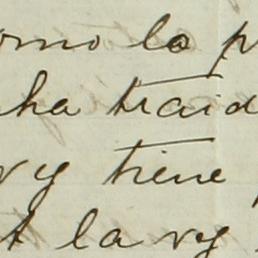 omo lo p
ha traid
vy tiene
t la vy